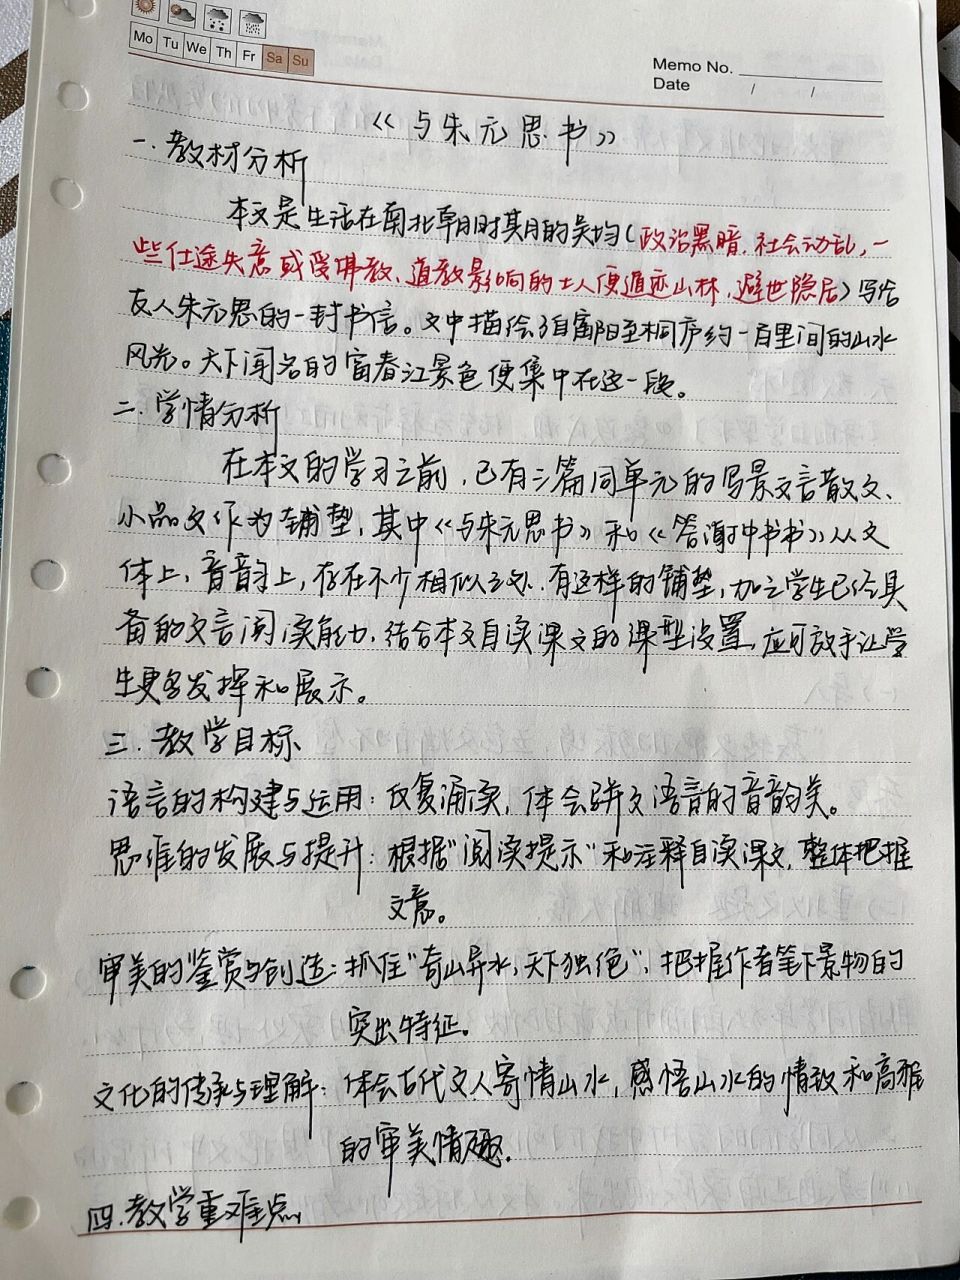 Mo Tu We Th Fr Sa Su
Memo No.
Date / /
《与朱元思书》
一.教材分析
本文是生活在南北朝时期的吴均(政治黑暗.社会动乱,一
些仕途失意或受佛教、道教影响的士人便遁迹山林,避世隐居)写给
友人朱元思的一封书信。文中描绘了自富阳至桐庐约一百里间的山水
风光。天下闻名的富春江景色便集中在这一段。
二.学情分析
在本文的学习之前,已有三篇同单元的写景文言散文、
小品文作为铺垫,其中《与朱元思书》和《答谢中书书》从文
体上,音韵上,存在不少相似之处.有这样的铺垫,加之学生已经具
备的文言阅读能力,结合本文自读课文的课型设置,应可放手让学
生更多发挥和展示。
三.教学目标
语言的构建与运用:反复诵读,体会骈文语言的音韵美。
思维的发展与提升:根据"阅读提示"和注释自读课文,整体把握
文意。
审美的鉴赏与创造:抓住"奇山异水,天下独绝",把握作者笔下景物的
突出特征。
文化的传承与理解:体会古代文人寄情山水,感悟山水的情致和高雅
的审美情趣.
四.教学重难点